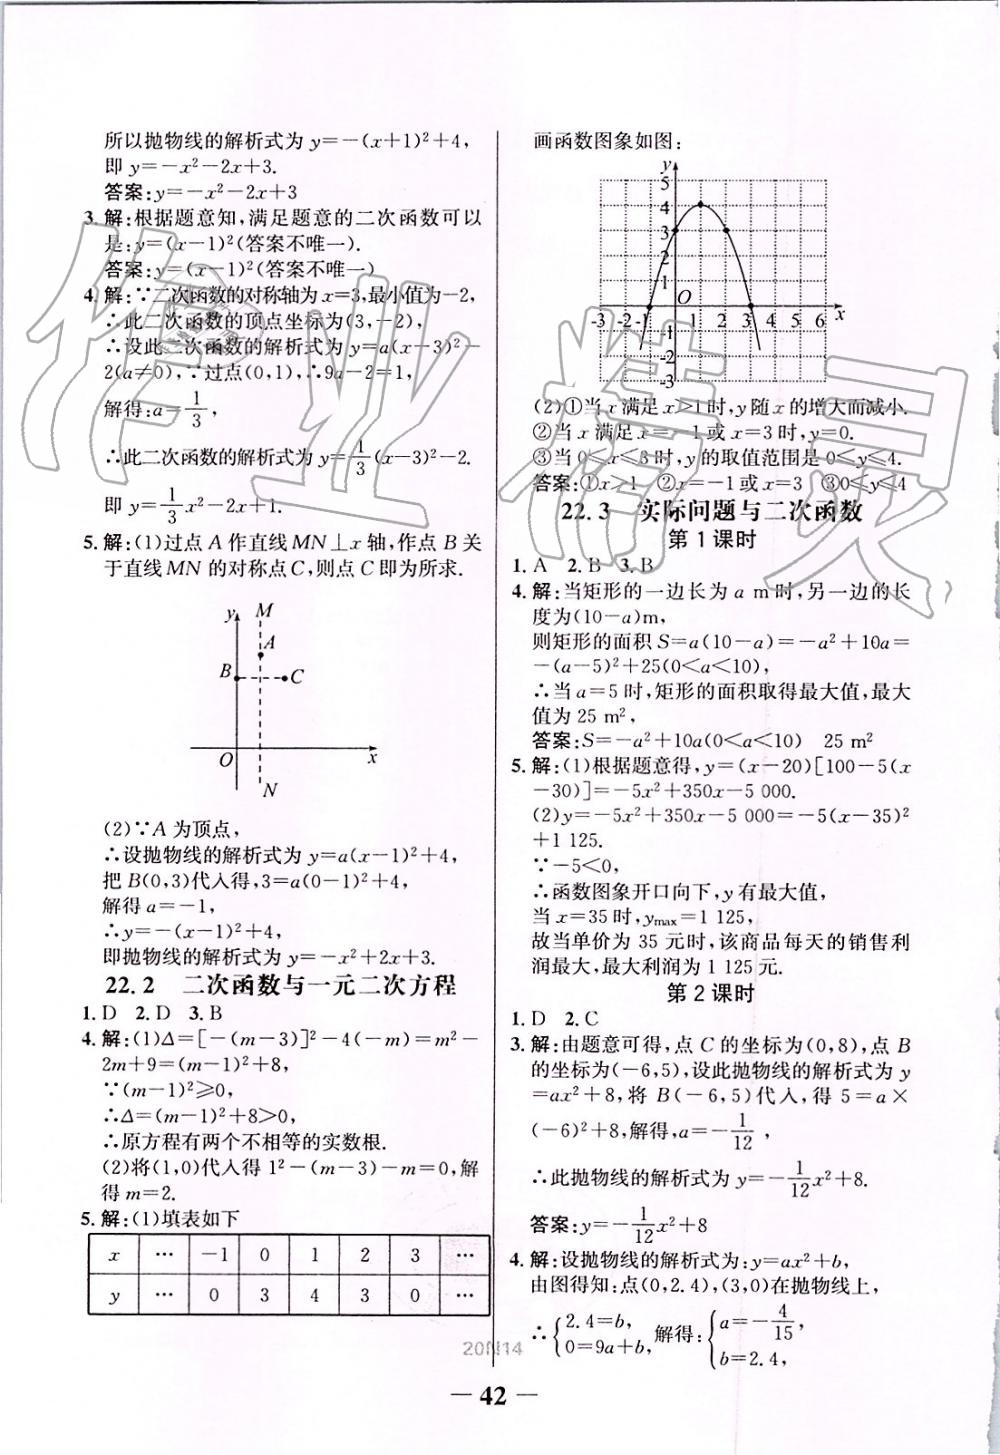 所以抛物线的解析式为 y=-(x+1)²+4,
即 y=-x²-2x+3.
答案:y=-x²-2x+3
3. 解:根据题意知,满足题意的二次函数可以
是:y=(x-1)²(答案不唯一).
答案:y=(x-1)²(答案不唯一)
4. 解:∵二次函数的对称轴为 x=3,最小值为-2,
∴此二次函数的顶点坐标为(3,-2),
∴设此二次函数的解析式为 y=a(x-3)²-
2(a≠0),∵过点(0,1),∴9a-2=1,
解得:a=1/3,
∴此二次函数的解析式为 y=1/3(x-3)²-2.
即 y=1/3x²-2x+1.
5. 解:(1)过点 A 作直线 MN⊥x 轴,作点 B 关
于直线 MN 的对称点 C,则点 C 即为所求.
y M
A
B C
O x
N
(2)∵A 为顶点,
∴设抛物线的解析式为 y=a(x-1)²+4,
把 B(0,3)代入得,3=a(0-1)²+4,
解得 a=-1,
∴y=-(x-1)²+4,
即抛物线的解析式为 y=-x²+2x+3.
22.2 二次函数与一元二次方程
1. D 2. D 3. B
4. 解:(1)Δ=[-(m-3)]²-4(-m)=m²-
2m+9=(m-1)²+8,
∵(m-1)²≥0,
∴Δ=(m-1)²+8>0,
∴原方程有两个不相等的实数根.
(2)将(1,0)代入得 1²-(m-3)-m=0,解
得 m=2.
5. 解:(1)填表如下
x … -1 0 1 2 3 …
y … 0 3 4 3 0 …
画函数图象如图:
y
5
4
3
2
1
O
-3 -2 -1 1 2 3 4 5 6 x
-1
-2
-3
(2)①当 x 满足 x>1 时,y 随 x 的增大而减小.
②当 x 满足 x=-1 或 x=3 时,y=0.
③当 0≤x≤3 时,y 的取值范围是 0≤y≤4.
答案:①x>1 ②x=-1 或 x=3 ③0≤y≤4
22.3 实际问题与二次函数
第 1 课时
1. A 2. B 3. B
4. 解:当矩形的一边长为 a m 时,另一边的长
度为(10-a)m,
则矩形的面积 S=a(10-a)=-a²+10a=
-(a-5)²+25(0<a<10),
∴当 a=5 时,矩形的面积取得最大值,最大
值为 25 m²,
答案:S=-a²+10a(0<a<10) 25 m²
5. 解:(1)根据题意得,y=(x-20)[100-5(x
-30)]=-5x²+350x-5 000.
(2)y=-5x²+350x-5 000=-5(x-35)²
+1 125.
∵-5<0,
∴函数图象开口向下,y 有最大值,
当 x=35 时,ymax=1 125,
故当单价为 35 元时,该商品每天的销售利
润最大,最大利润为 1 125 元.
第 2 课时
1. D 2. C
3. 解:由题意可得,点 C 的坐标为(0,8),点 B
的坐标为(-6,5),设此抛物线的解析式为 y
=ax²+8,将 B(-6,5)代入,得 5=a×
(-6)²+8,解得,a=-1/12,
∴此抛物线的解析式为 y=-1/12x²+8.
答案:y=-1/12x²+8
4. 解:设抛物线的解析式为:y=ax²+b,
由图得知:点(0,2.4),(3,0)在抛物线上,
∴{2.4=b, 0=9a+b, 解得:{a=-4/15, b=2.4,
20N14
— 42 —
作业精灵